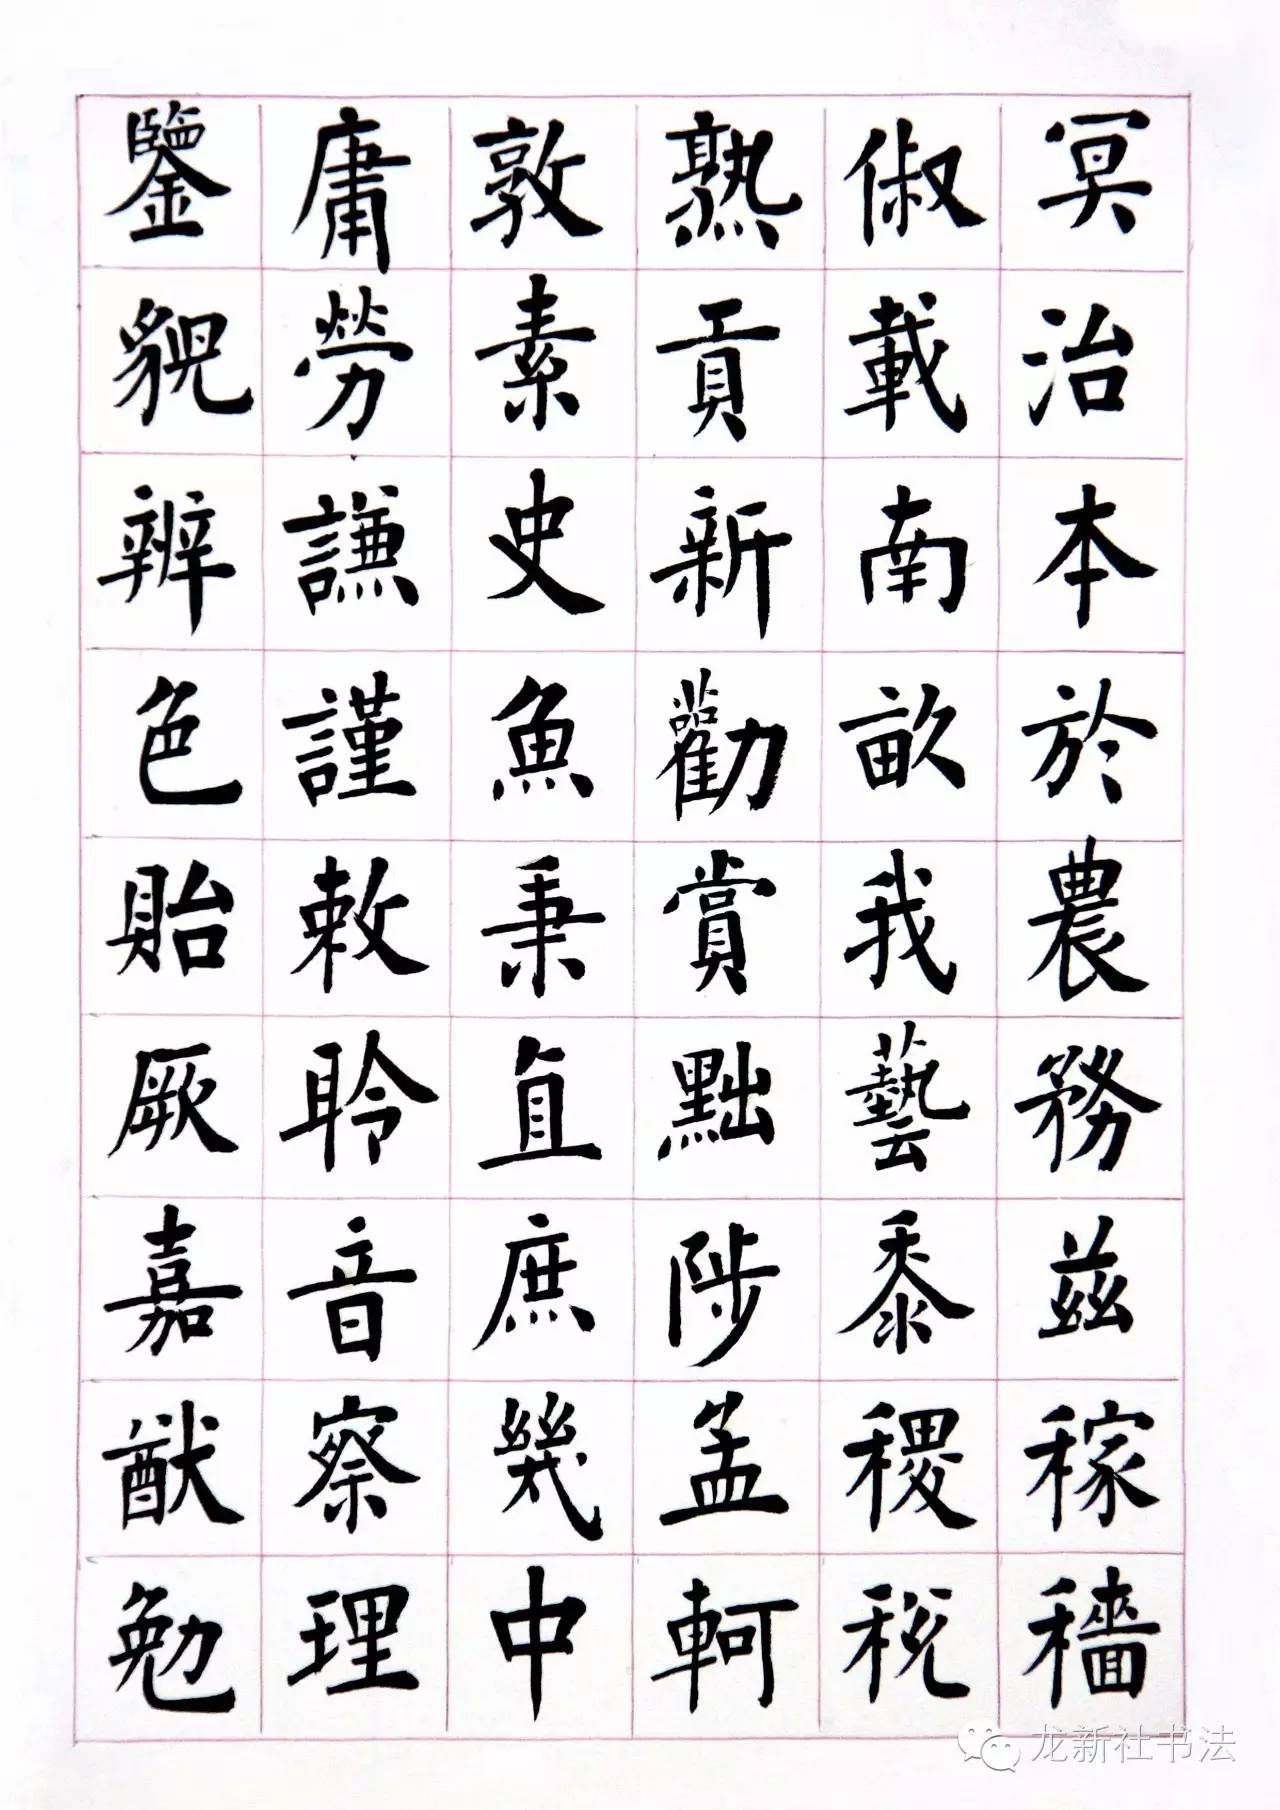 冥治本於農務兹稼穡
俶載南畝我藝黍稷稅
熟貢新勸賞黜陟孟軻
敦素史魚秉直庶幾中
庸勞謙謹敕聆音察理
鑒貌辨色貽厥嘉猷勉
龙新社书法